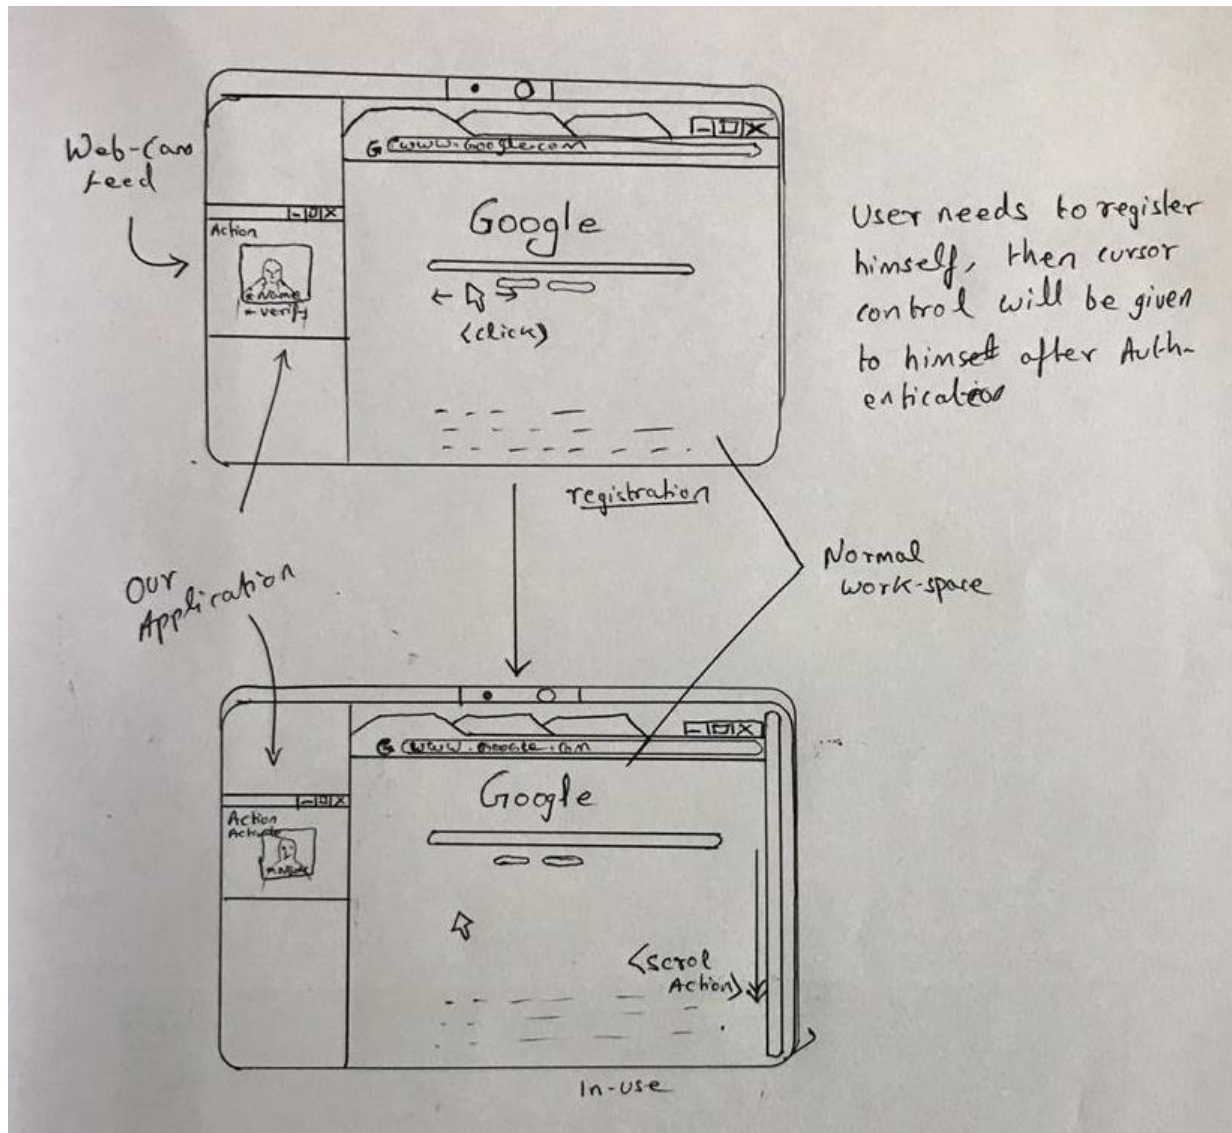 Web-Cam
feed
G www.Google.com
Google
Action
Name
verify
<click>
User needs to register
himself, then cursor
control will be given
to himself after Auth-
entication
registration
Our
Application
Normal
work-space
G www.google.com
Google
Action
Activate
Name
<scrol
Action>
In-use